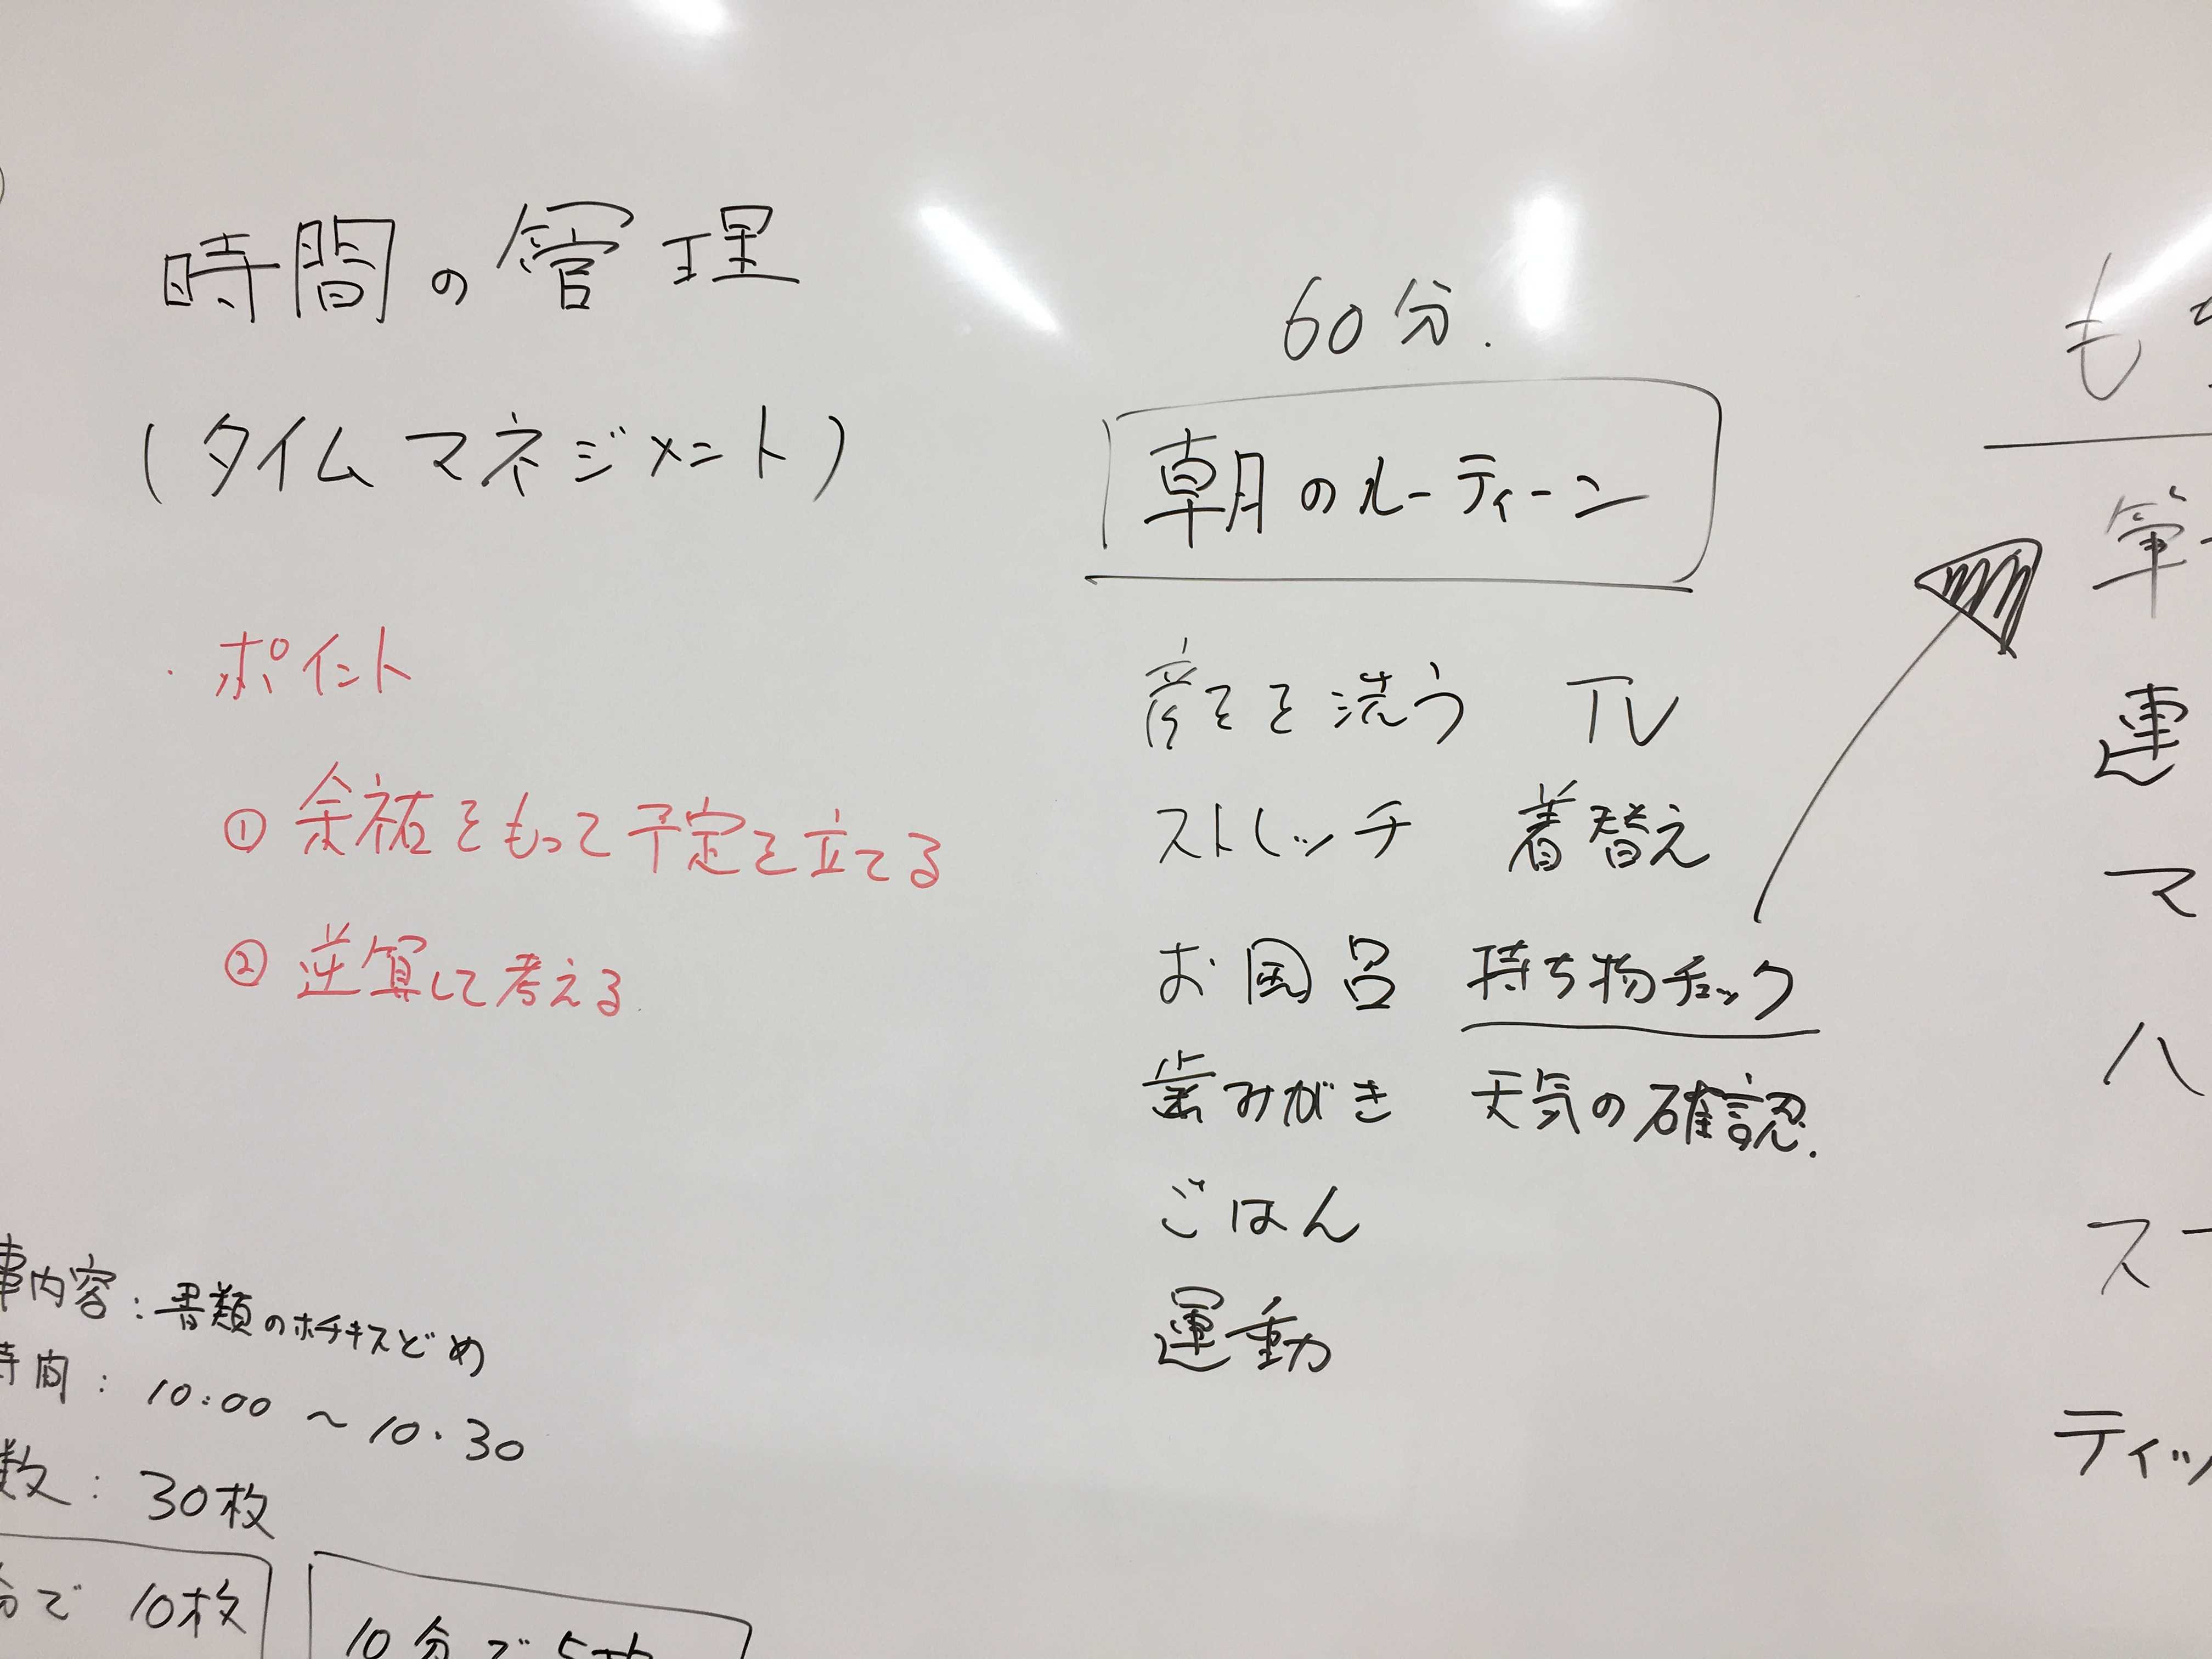 時間の管理
(タイムマネジメント)
・ポイント
① 余裕をもって予定を立てる
② 逆算して考える
事内容:書類のホチキスどめ
時間:10:00 ~ 10.30
数:30枚
分で 10枚
10分で5枚
60分.
朝のルーティーン
を洗う TV
ストレッチ 着替え
お風呂 持ち物チェック
歯みがき 天気の確認.
ごはん
運動
も
筆
連
マ
ハ
ス
ティッ